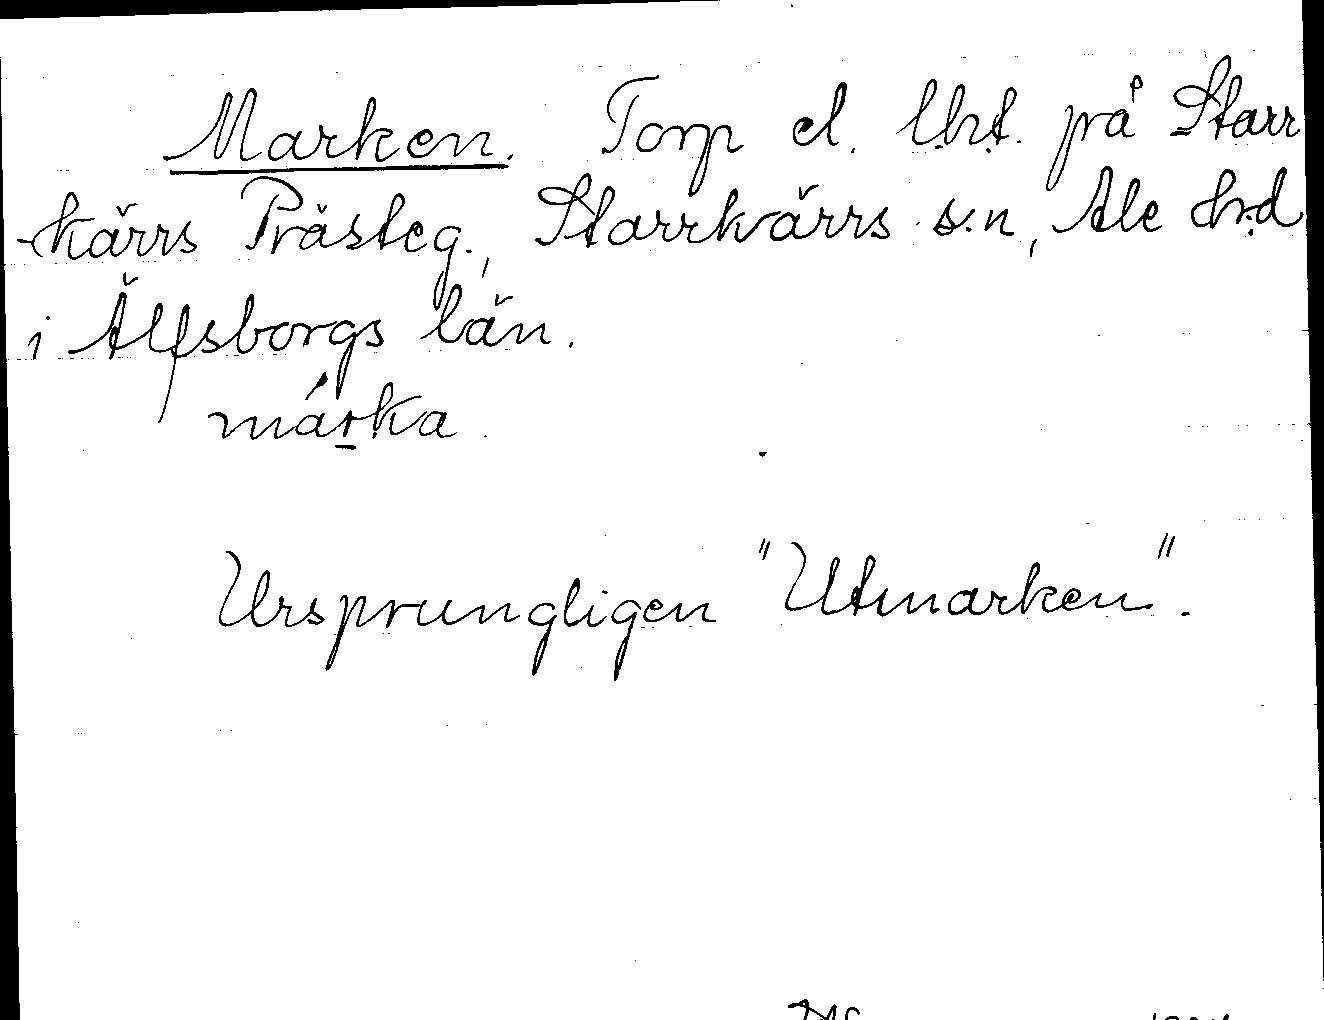 Marken. Torp el. lht. på Starr
kärrs Prästeg., Starrkärrs s:n, Ale hd
i Älfsborgs län.
márka
Ursprungligen "Utmarken".